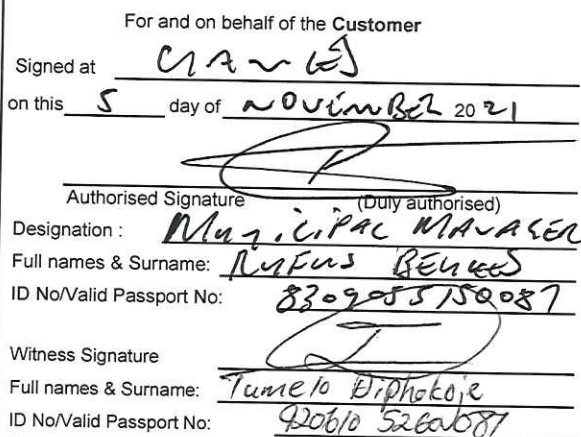 For and on behalf of the Customer
Signed at
on this 5 day of NOVEMBER 2021
Authorised Signature (Duly authorised)
Designation : Municipal MANAGER
Full names & Surname: RUFUS
ID No/Valid Passport No: 8309055150087
Witness Signature
Full names & Surname: Tumelo
ID No/Valid Passport No: 920610